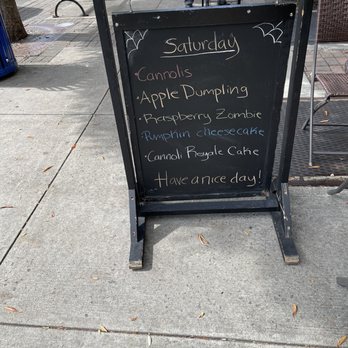 Saturday
· Cannolis
· Apple Dumpling
· Raspberry Zombie
· Pumpkin cheesecake
· Cannoli Regale Cake
Have a nice day!